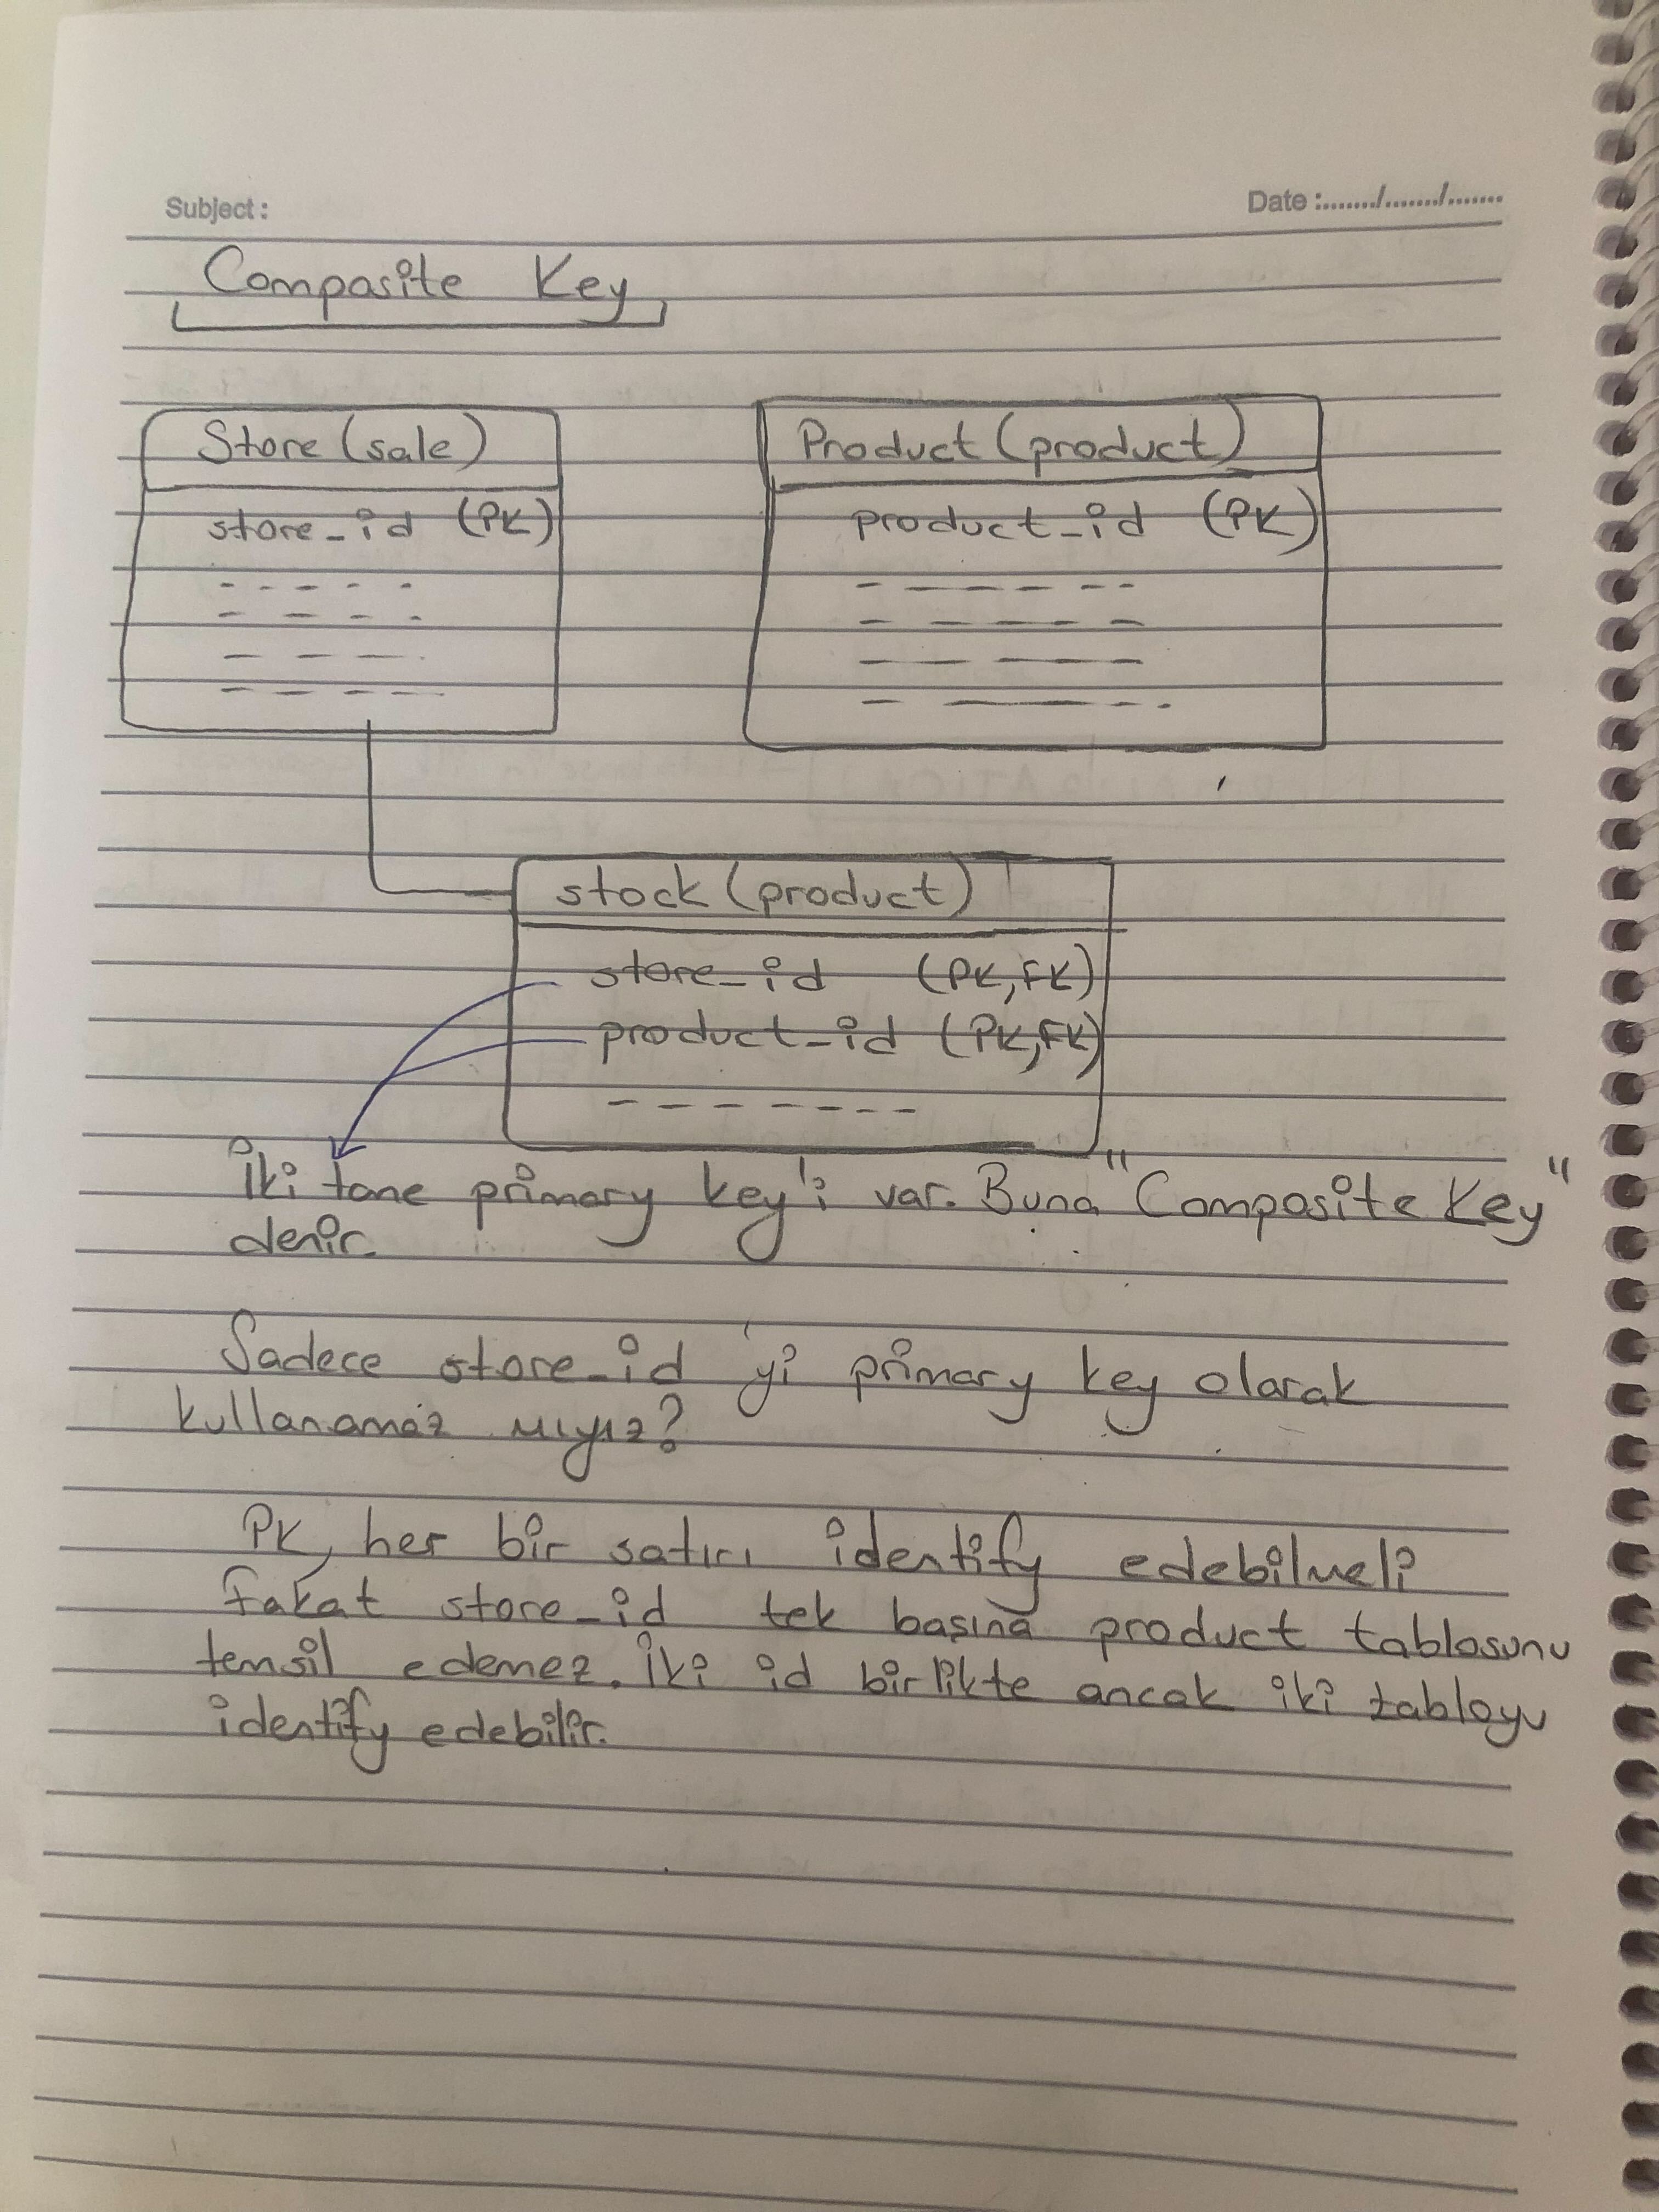 Subject :
Date :......../......../........
Composite Key
Store (sale)
store_id (PK)
Product (product)
product_id (PK)
stock (product)
store_id (PK,FK)
product_id (PK,FK)
İki tane primary key'i var. Buna "Composite Key"
denir.
Sadece store_id 'yi primary key olarak
kullanamaz mıyız?
PK, her bir satırı identify edebilmeli
fakat store_id tek başına product tablosunu
temsil edemez. İki id birlikte ancak iki tabloyu
identify edebilir.